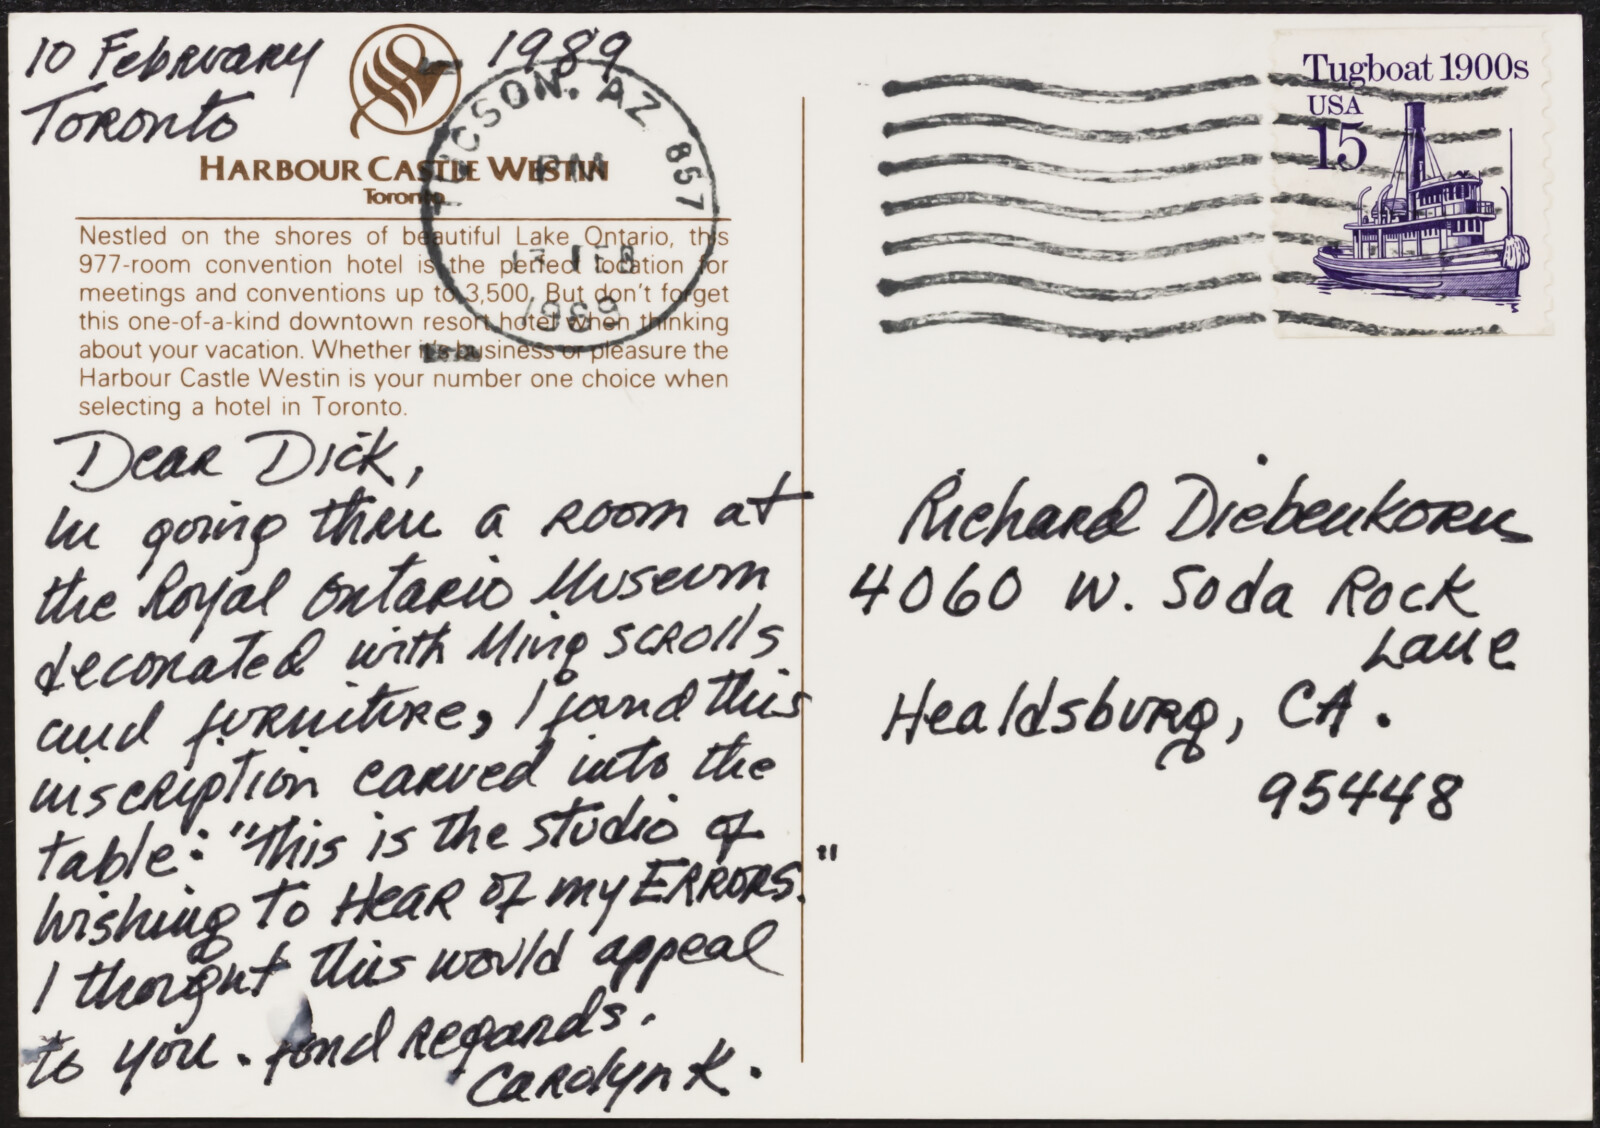 10 February 1989
Toronto
HARBOUR CASTLE WESTIN
Toronto
Nestled on the shores of beautiful Lake Ontario, this
977-room convention hotel is the perfect location for
meetings and conventions up to 3,500. But don't forget
this one-of-a-kind downtown resort hotel when thinking
about your vacation. Whether it's business or pleasure the
Harbour Castle Westin is your number one choice when
selecting a hotel in Toronto.
Dear Dick,
In going thru a room at
the Royal Ontario Museum
decorated with Ming scrolls
and furniture, I found this
inscription carved into the
table: "This is the studio of
Wishing to Hear of my ERRORS."
I thought this would appeal
to you. fond regards.
Carolyn K.
TUCSON, AZ 857
PM
FEB
1989
Tugboat 1900s
USA
15
Richard Diebenkorn
4060 W. Soda Rock
Lane
Healdsburg, CA.
95448